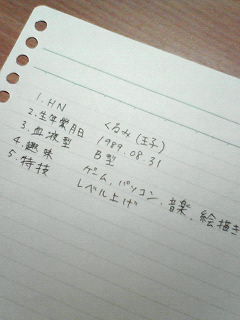 1. HN くるみ(王子)
2. 生年月日 1989.08.31
3. 血液型 B型
4. 趣味 ゲーム、パソコン、音楽、絵描き
5. 特技 レベル上げ